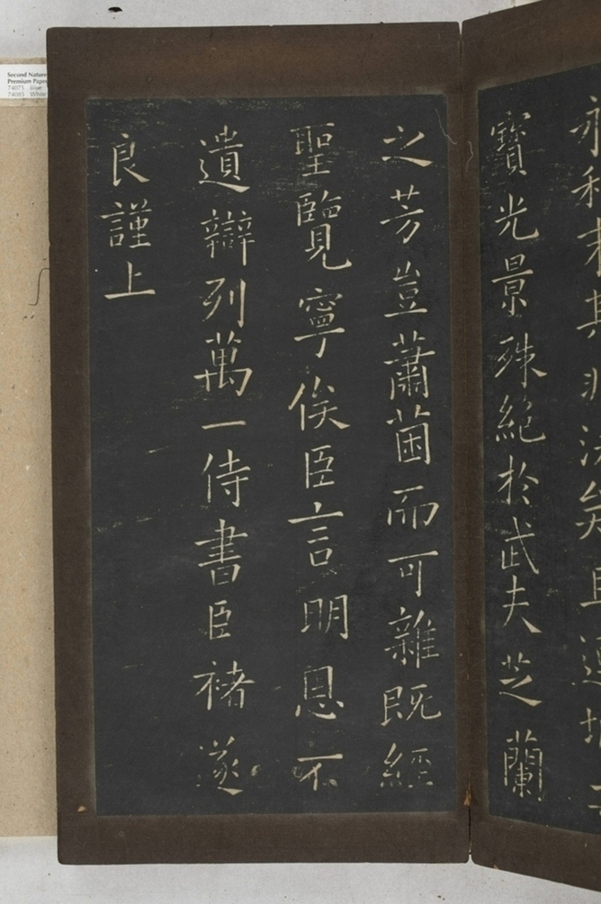 永和 其非法矣且
寶光景殊絕於武夫芝蘭
之芳豈蕭茵而可雜既經
聖覽寧俟臣言明恩不
遺辯列萬一侍書臣褚遂
良謹上
Second Nature
Premium Paper